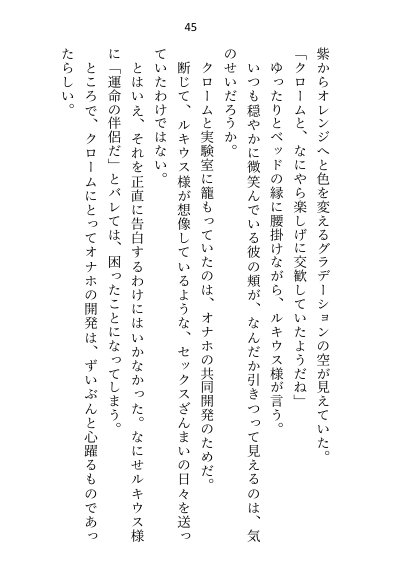 45
紫からオレンジへと色を変えるグラデーションの空が見えていた。
「クロームと、なにやら楽しげに交歓していたようだね」
ゆったりとベッドの縁に腰掛けながら、ルキウス様が言う。
いつも穏やかに微笑んでいる彼の頬が、なんだか引きつって見えるのは、気
のせいだろうか。
クロームと実験室に籠もっていたのは、オナホの共同開発のためだ。
断じて、ルキウス様が想像しているような、セックスざんまいの日々を送っ
ていたわけではない。
とはいえ、それを正直に告白するわけにはいかなかった。なにせルキウス様
に「運命の伴侶だ」とバレては、困ったことになってしまう。
ところで、クロームにとってオナホの開発は、ずいぶんと心躍るものであっ
たらしい。